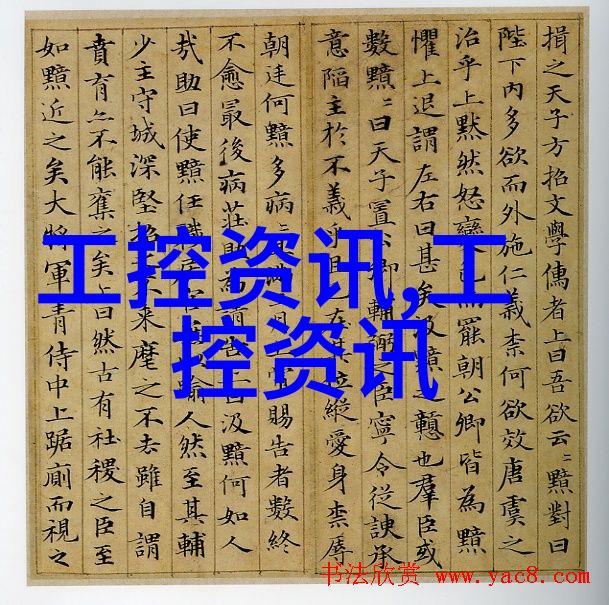 揖之天子方招文學儒者上曰吾欲云〻黯對曰
陛下內多欲而外施仁義柰何欲效唐虞之
治乎上黙然怒變而罷朝公卿皆為黯
懼上退謂左右曰甚矣汲黯之戇也羣臣或
數黯〻曰天子置公卿輔弼之臣寧令從諛承
意陷主於不義乎且已在其位縱愛身柰辱
朝廷何黯多病〻且滿三月上常賜告者數終
不愈最後病莊助為請告上曰汲黯何如人
哉助曰使黯任職居官踰人然至其輔
少主守城深堅招来麾之不去雖自謂
賁育亦不能奪之矣上曰然古有社稷之臣至
如黯近之矣大將軍青侍中上踞廁而視之
工控资讯,工
控资讯
书法欣赏 www.yac8.com